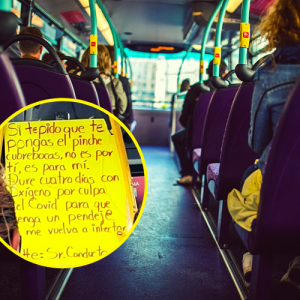 Si te pido que te
pongas el pinche
cubrebocas, no es por
ti, es para mi.
Dure cuatro días con
oxígeno por culpa
el Covid para que
enga un pendej
me vuelva a infectar
te: Sr. Conducto